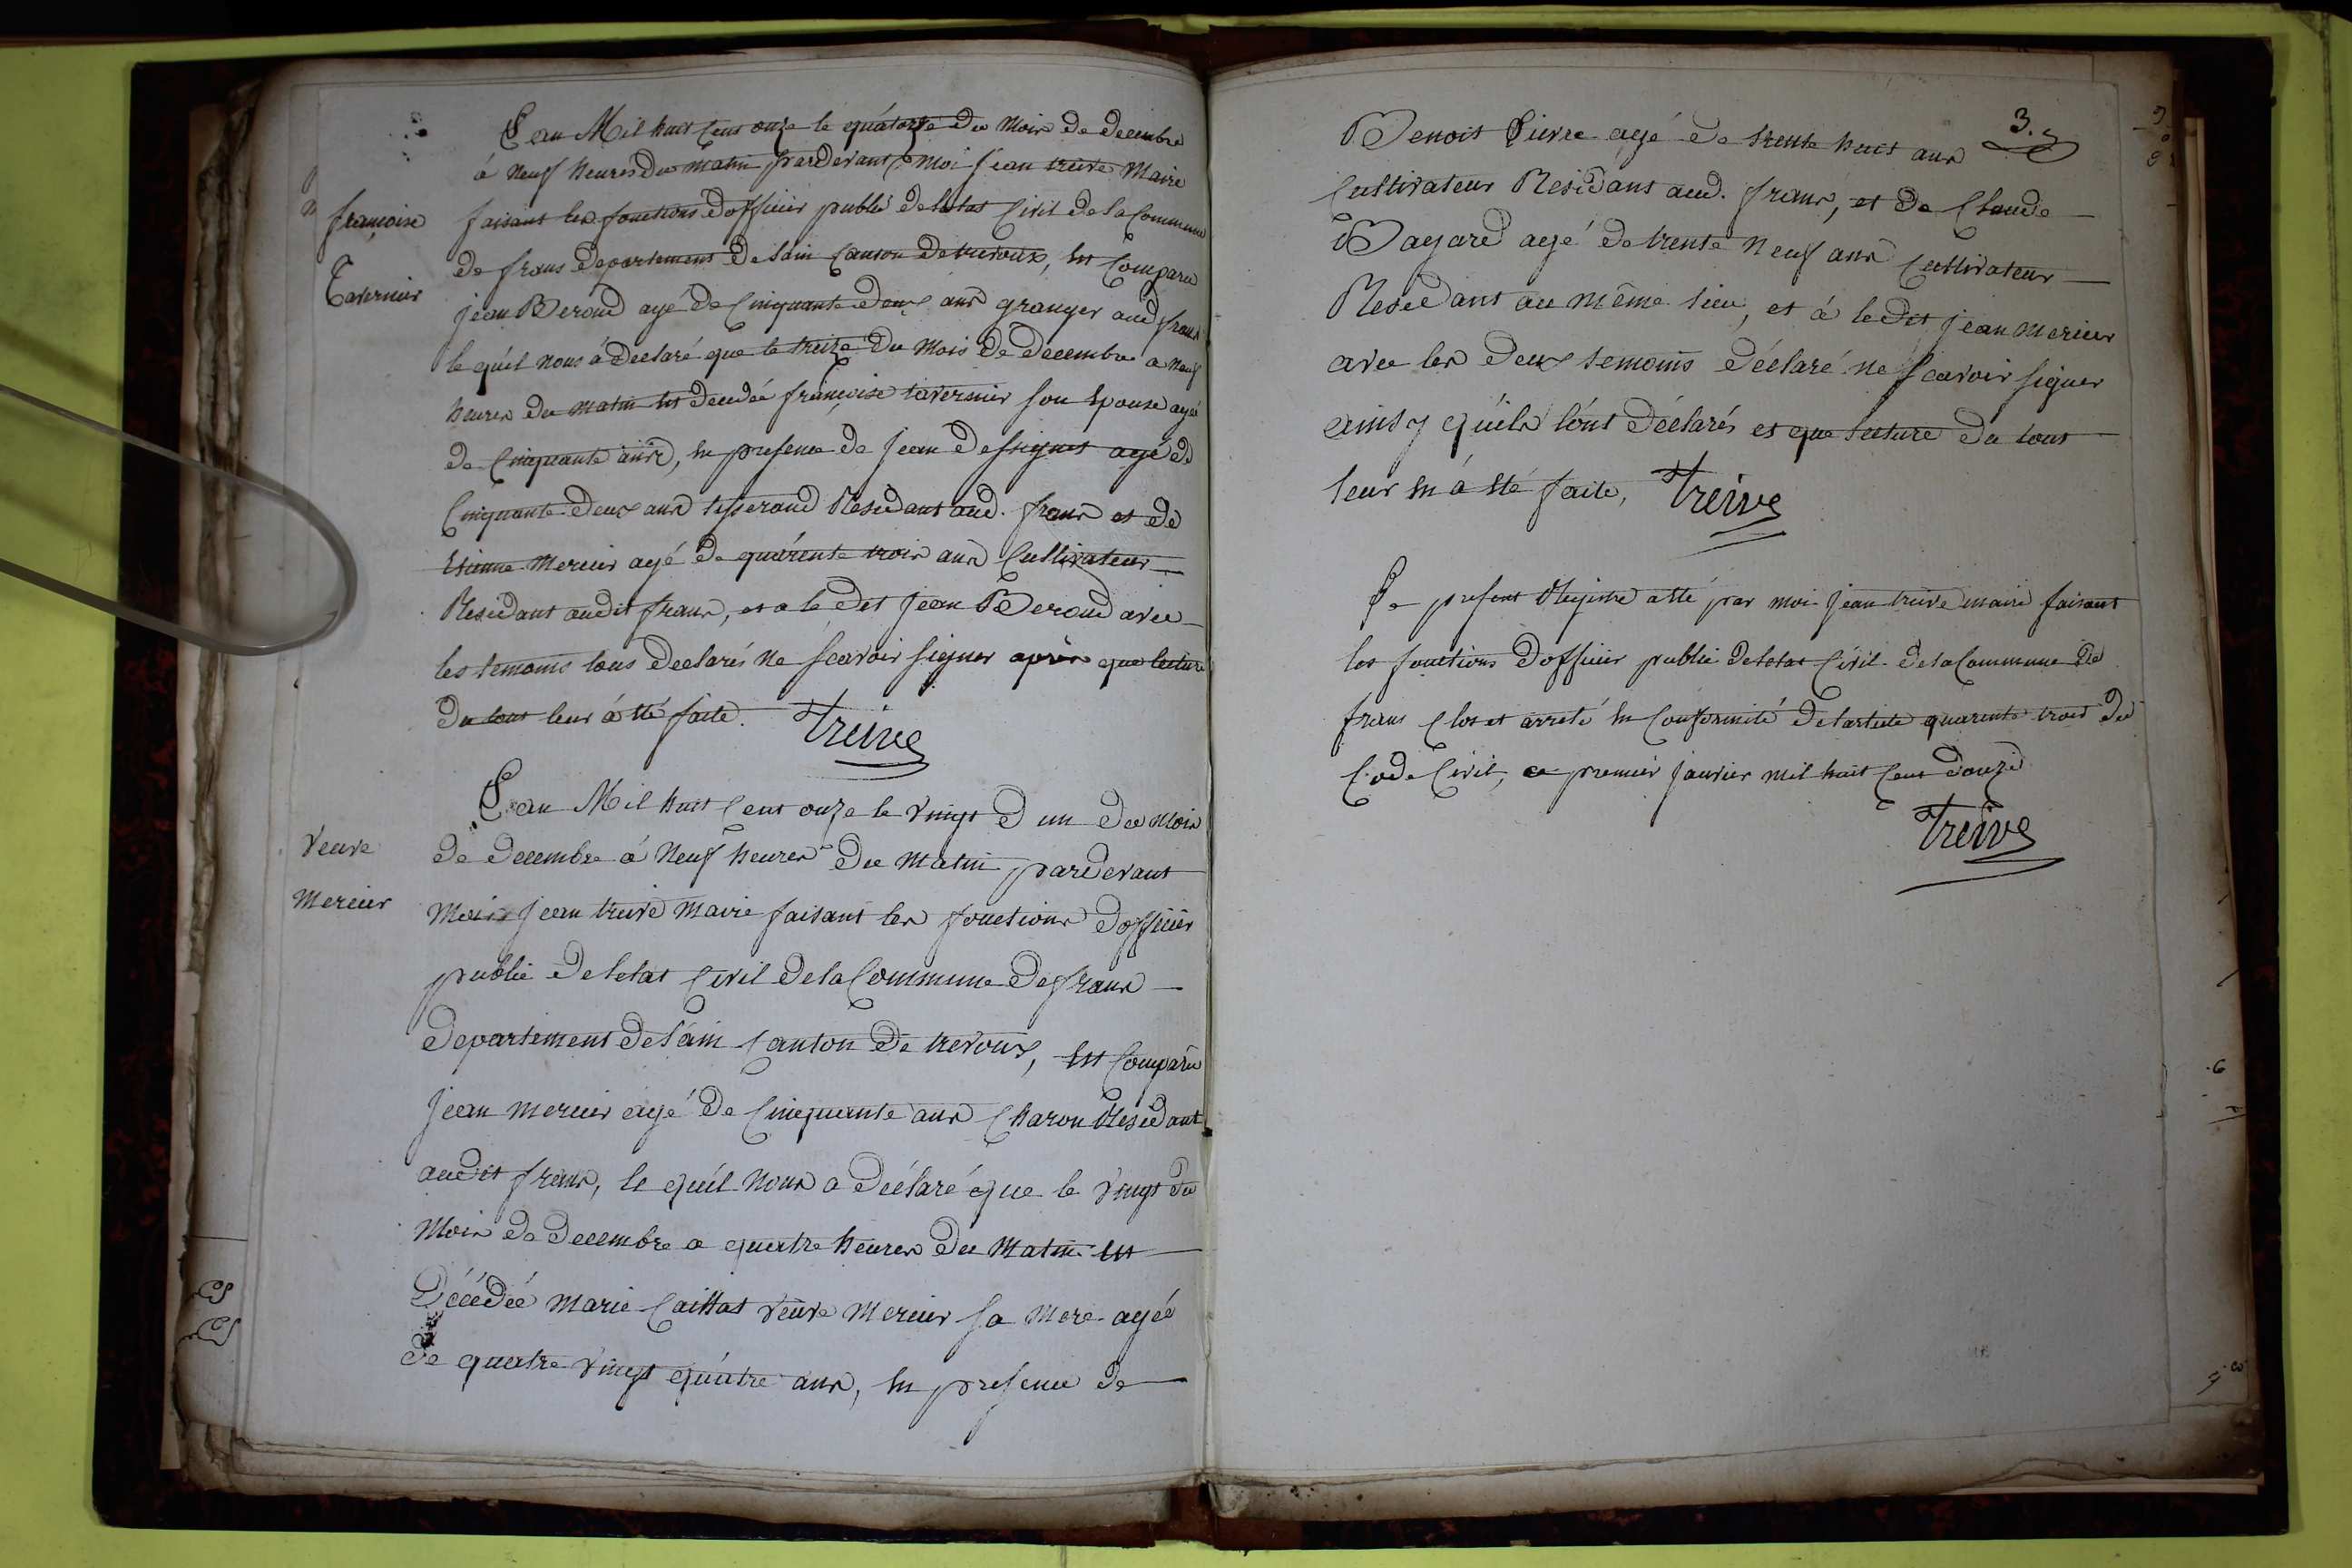 Lan Mil huit Cens onze le quátorze du Mois de decembre
á Neuf heures du matin pardevant Moi Jean treive Maire
françoise
faisant les fonctions dofficier public deletat Civil dela Commune
de frans departement de lain Canton de trevoux, est Comparu
Tavernier
jean Beroud agé de Cinquante deux ans granger aud frans
le quél nous á declaré que le treize du Mois de decembre a neuf
heures du matin est decedée françoise tavernier son Epouse agée
de Cinquante ans, en presence de jean dessignes agé de
Cinquante deux ans tisserand Residant aud. frans et de
Etienne Mercier agé de quárente trois ans Cultivateur
Residant audit frans, et a le dit jean Beroud avec
les temoins tous declarés ne scavoir signer après que lecture
du tout leur á eté faite. Treive
Lan Mil huit Cent onze le vingt d un du Mois
Veuve
de decembre á Neuf heures du matin pardevant
Mercier
Moi Jean treive Maire faisant les fonctions dofficier
public deletat Civil dela Commune de frans
departement de láin Canton de trevoux, est Comparu
jean mercier agé de Cinquante ans Charon Residant
audit frans, le quél Nous a déclaré que le vingt du
Mois de decembre a quatre heures du Matin est
Décédée Marie Caillat veuve Mercier sa Mere agée
de quatre vingt quátre ans, en presence de
3.
Benoit Pierre agé de trente huit ans
Cultivateur Residant aud. frans, et de Claude
Bayard agé de trente Neuf ans Cultivateur
Residant au même lieu, et á le dit jean mercier
avec les deux temoins déclaré ne scavoir signer
ainsy quéils lónt déclarés et que lecture du tout
leur en á eté faite, Treive
Le present Registre a eté par moi Jean treive maire faisant
les fonctions dofficier public deletat Civil dela Commune de
frans Clos et arreté en Conformité delarticle quarente trois du
Code Civil, ce premier Janvier mil huit Cent douze
Treive